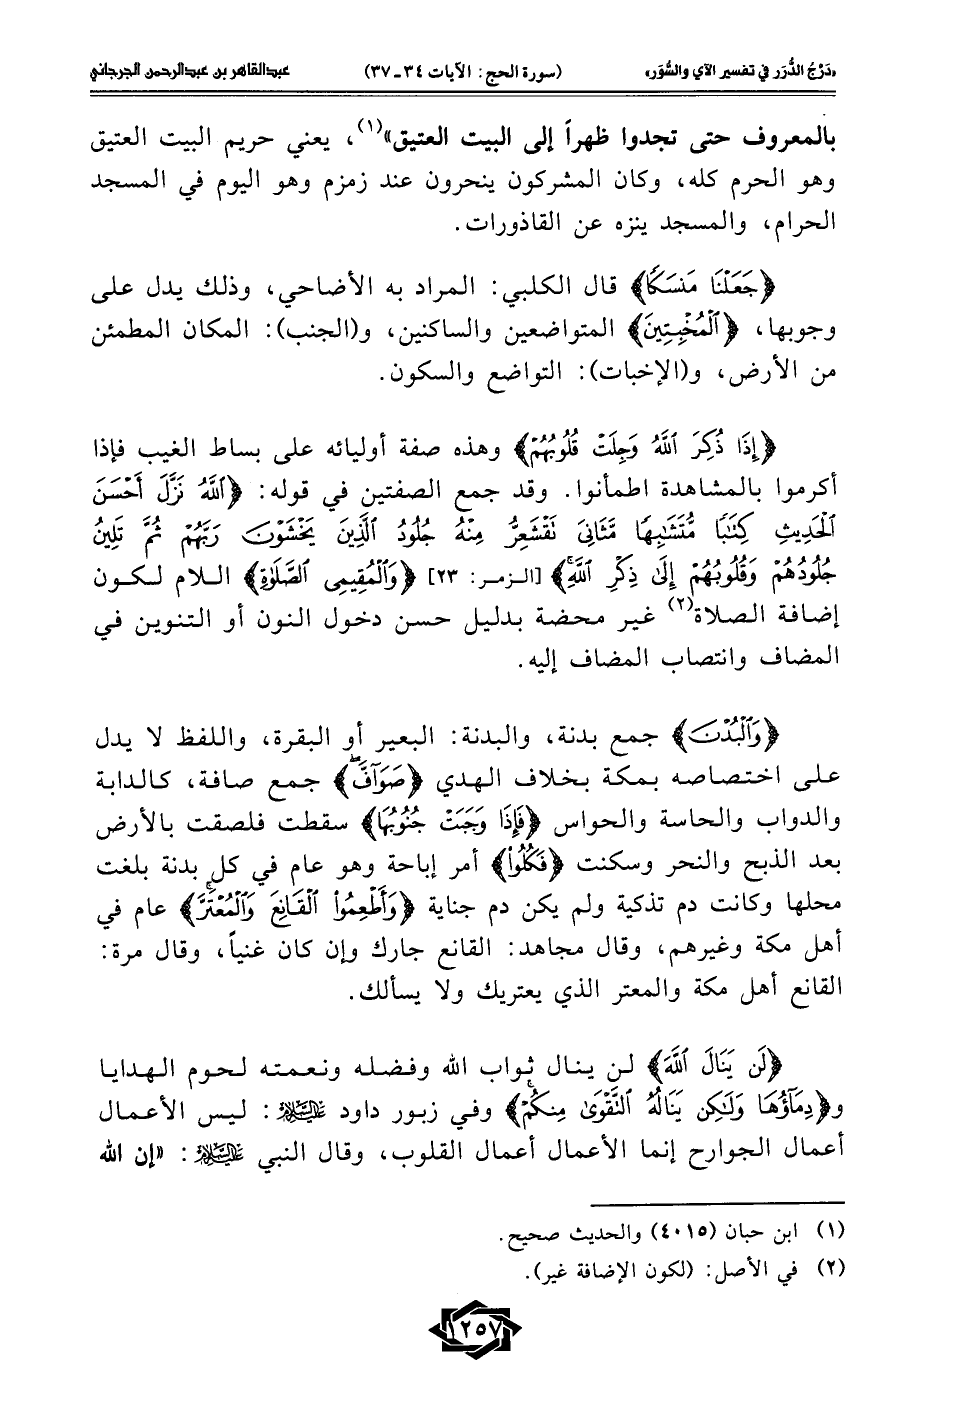 «دَرْجُ الدُّرَر في تفسير الآي والسُّوَر» (سورة الحج: الآيات ٣٤ـ٣٧) عبدالقاهر بن عبدالرحمن الجرجاني
بالمعروف حتى تجدوا ظهراً إلى البيت العتيق»(١)، يعني حريم البيت العتيق
وهو الحرم كله، وكان المشركون ينحرون عند زمزم وهو اليوم في المسجد
الحرام، والمسجد ينزه عن القاذورات.
﴿جَعَلْنَا مَنسَكًا﴾ قال الكلبي: المراد به الأضاحي، وذلك يدل على
وجوبها، ﴿ٱلْمُخْبِتِينَ﴾ المتواضعين والساكنين، و(الجنب): المكان المطمئن
من الأرض، و(الإخبات): التواضع والسكون.
﴿إِذَا ذُكِرَ ٱللَّهُ وَجِلَتْ قُلُوبُهُمْ﴾ وهذه صفة أوليائه على بساط الغيب فإذا
أكرموا بالمشاهدة اطمأنوا. وقد جمع الصفتين في قوله: ﴿ٱللَّهُ نَزَّلَ أَحْسَنَ
ٱلْحَدِيثِ كِتَٰبًا مُّتَشَٰبِهًا مَّثَانِىَ نَقْشَعِرُّ مِنْهُ جُلُودُ ٱلَّذِينَ يَخْشَوْنَ رَبَّهُمْ ثُمَّ تَلِينُ
جُلُودُهُمْ وَقُلُوبُهُمْ إِلَىٰ ذِكْرِ ٱللَّهِ﴾ [الزمر: ٢٣] ﴿وَٱلْمُقِيمِى ٱلصَّلَوٰةِ﴾ اللام لكون
إضافة الصلاة(٢) غير محضة بدليل حسن دخول النون أو التنوين في
المضاف وانتصاب المضاف إليه.
﴿وَٱلْبُدْنَ﴾ جمع بدنة، والبدنة: البعير أو البقرة، واللفظ لا يدل
على اختصاصه بمكة بخلاف الهدي ﴿صَوَآفَّ﴾ جمع صافة، كالدابة
والدواب والحاسة والحواس ﴿فَإِذَا وَجَبَتْ جُنُوبُهَا﴾ سقطت فلصقت بالأرض
بعد الذبح والنحر وسكنت ﴿فَكُلُوا۟﴾ أمر إباحة وهو عام في كل بدنة بلغت
محلها وكانت دم تذكية ولم يكن دم جناية ﴿وَأَطْعِمُوا۟ ٱلْقَانِعَ وَٱلْمُعْتَرَّ﴾ عام في
أهل مكة وغيرهم، وقال مجاهد: القانع جارك وإن كان غنياً، وقال مرة:
القانع أهل مكة والمعتر الذي يعتريك ولا يسألك.
﴿لَن يَنَالَ ٱللَّهَ﴾ لن ينال ثواب الله وفضله ونعمته لحوم الهدايا
و﴿دِمَآؤُهَا وَلَٰكِن يَنَالُهُ ٱلتَّقْوَىٰ مِنكُمْ﴾ وفي زبور داود عليه السلام: ليس الأعمال
أعمال الجوارح إنما الأعمال أعمال القلوب، وقال النبي عليه السلام: «إن الله
(١) ابن حبان (٤٠١٥) والحديث صحيح.
(٢) في الأصل: (لكون الإضافة غير).
١٢٥٧